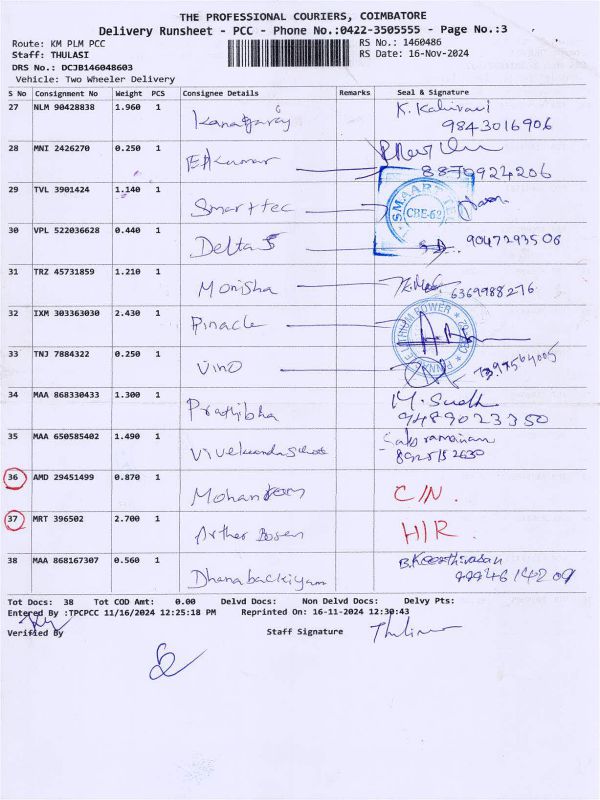 THE PROFESSIONAL COURIERS, COIMBATORE
Delivery Runsheet - PCC - Phone No.:0422-3505555 - Page No.:3
Route: KM PLM PCC RS No.: 1460486
Staff: THULASI RS Date: 16-Nov-2024
DRS No.: DCJB146048603
Vehicle: Two Wheeler Delivery
S No Consignment No Weight PCS Consignee Details Remarks Seal & Signature
27 NLM 90428838 1.960 1
9843016906
28 MNI 2426270 0.250 1 8870924206
29 TVL 3901424 1.140 1 Smarttec SMAART CBE-62
30 VPL 522036628 0.440 1 Delta 9047293506
31 TRZ 45731859 1.210 1 Monisha 6369988276
32 IXM 303363030 2.430 1 Pinacle
33 TNJ 7884322 0.250 1 Vino
34 MAA 868330433 1.300 1 Prathibha
9489023350
35 MAA 650585402 1.490 1
36 AMD 29451499 0.870 1 C/N.
37 MRT 396502 2.700 1 Arther H/R.
38 MAA 868167307 0.560 1 Dhanabackiyam B.Keerthivasan
Tot Docs: 38 Tot COD Amt: 0.00 Delvd Docs: Non Delvd Docs: Delvy Pts:
Entered By :TPCPCC 11/16/2024 12:25:18 PM Reprinted On: 16-11-2024 12:30:43
Verified By Staff Signature